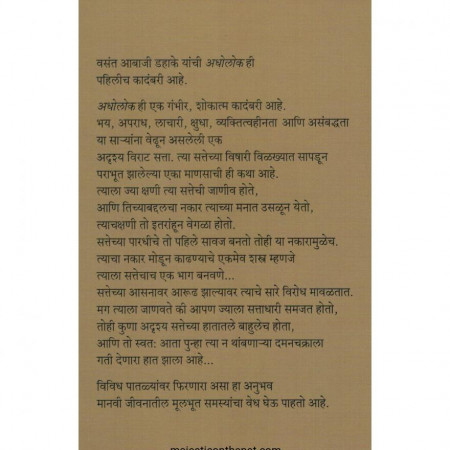 वसंत आबाजी डहाके यांची अधोलोक ही
पहिलीच कादंबरी आहे.
अधोलोक ही एक गंभीर, शोकात्म कादंबरी आहे.
भय, अपराध, लाचारी, क्षुधा, व्यक्तित्वहीनता आणि असंबद्धता
या साऱ्यांना वेढून असलेली एक
अदृश्य विराट सत्ता. त्या सत्तेच्या विषारी विळख्यात सापडून
पराभूत झालेल्या एका माणसाची ही कथा आहे.
त्याला ज्या क्षणी त्या सत्तेची जाणीव होते,
आणि तिच्याबद्दलचा नकार त्याच्या मनात उसळून येतो,
त्याचक्षणी तो इतरांहून वेगळा होतो.
सत्तेच्या पारधीचे तो पहिले सावज बनतो तोही या नकारामुळेच.
त्याचा नकार मोडून काढण्याचे एकमेव शस्त्र म्हणजे
त्याला सत्तेचाच एक भाग बनवणे...
सत्तेच्या आसनावर आरूढ झाल्यावर त्याचे सारे विरोध मावळतात.
मग त्याला जाणवते की आपण ज्याला सत्ताधारी समजत होतो,
तोही कुणा अदृश्य सत्तेच्या हातातले बाहुलेच होता,
आणि तो स्वत: आता पुन्हा त्या न थांबणाऱ्या दमनचक्राला
गती देणारा हात झाला आहे...
विविध पातळ्यांवर फिरणारा असा हा अनुभव
मानवी जीवनातील मूलभूत समस्यांचा वेध घेऊ पाहतो आहे.